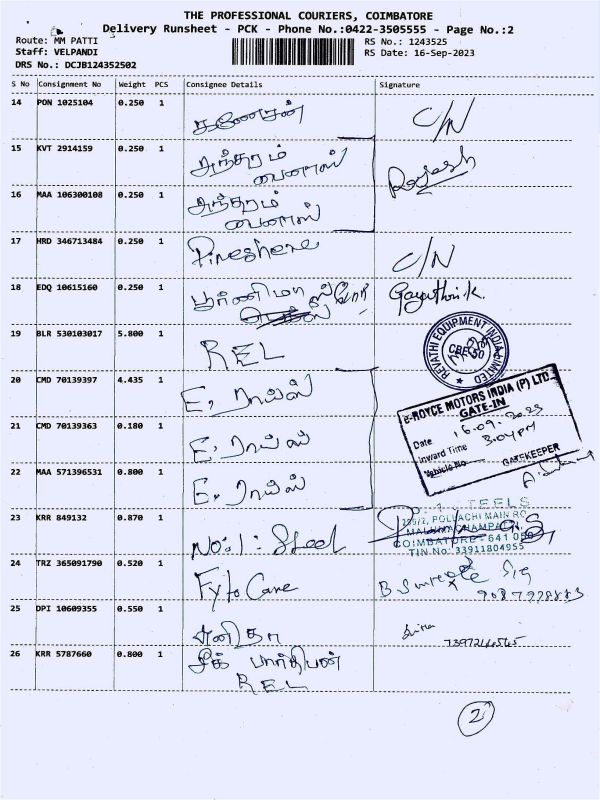 THE PROFESSIONAL COURIERS, COIMBATORE
Delivery Runsheet - PCK - Phone No.:0422-3505555 - Page No.:2
Route: MM PATTI
RS No.: 1243525
Staff: VELPANDI
RS Date: 16-Sep-2023
DRS No.: DCJB124352502
S No Consignment No Weight PCS Consignee Details Signature
14 PON 1025104 0.250 1 கணேசன் C/N
15 KVT 2914159 0.250 1 அந்தரம்
Rajesh
16 MAA 106300108 0.250 1 அந்தரம்
17 HRD 346713484 0.250 1 C/N
18 EDQ 10615160 0.250 1 பூர்ணிமா Gayathri.k.
19 BLR 530103017 5.800 1 REL
REVATHI EQUIPMENT INDIA LIMITED
CBE-50
20 CMD 70139397 4.435 1 E. ராய்ஸ்
e-ROYCE MOTORS INDIA (P) LTD.
GATE-IN
Date 16.09.2023
Inward Time 3.04 PM
Vehicle No
GATEKEEPER
21 CMD 70139363 0.180 1 E. ராய்ஸ்
22 MAA 571396531 0.800 1 E. ராய்ஸ்
23 KRR 849132 0.870 1 No: 1: Steel
STEELS
POLLACHI MAIN RO
COIMBATORE - 641 050
TIN No: 33911804955
24 TRZ 365091790 0.520 1 Fyto Care
25 DPI 10609355 0.550 1
26 KRR 5787660 0.800 1 பார்திபன்
REL
2